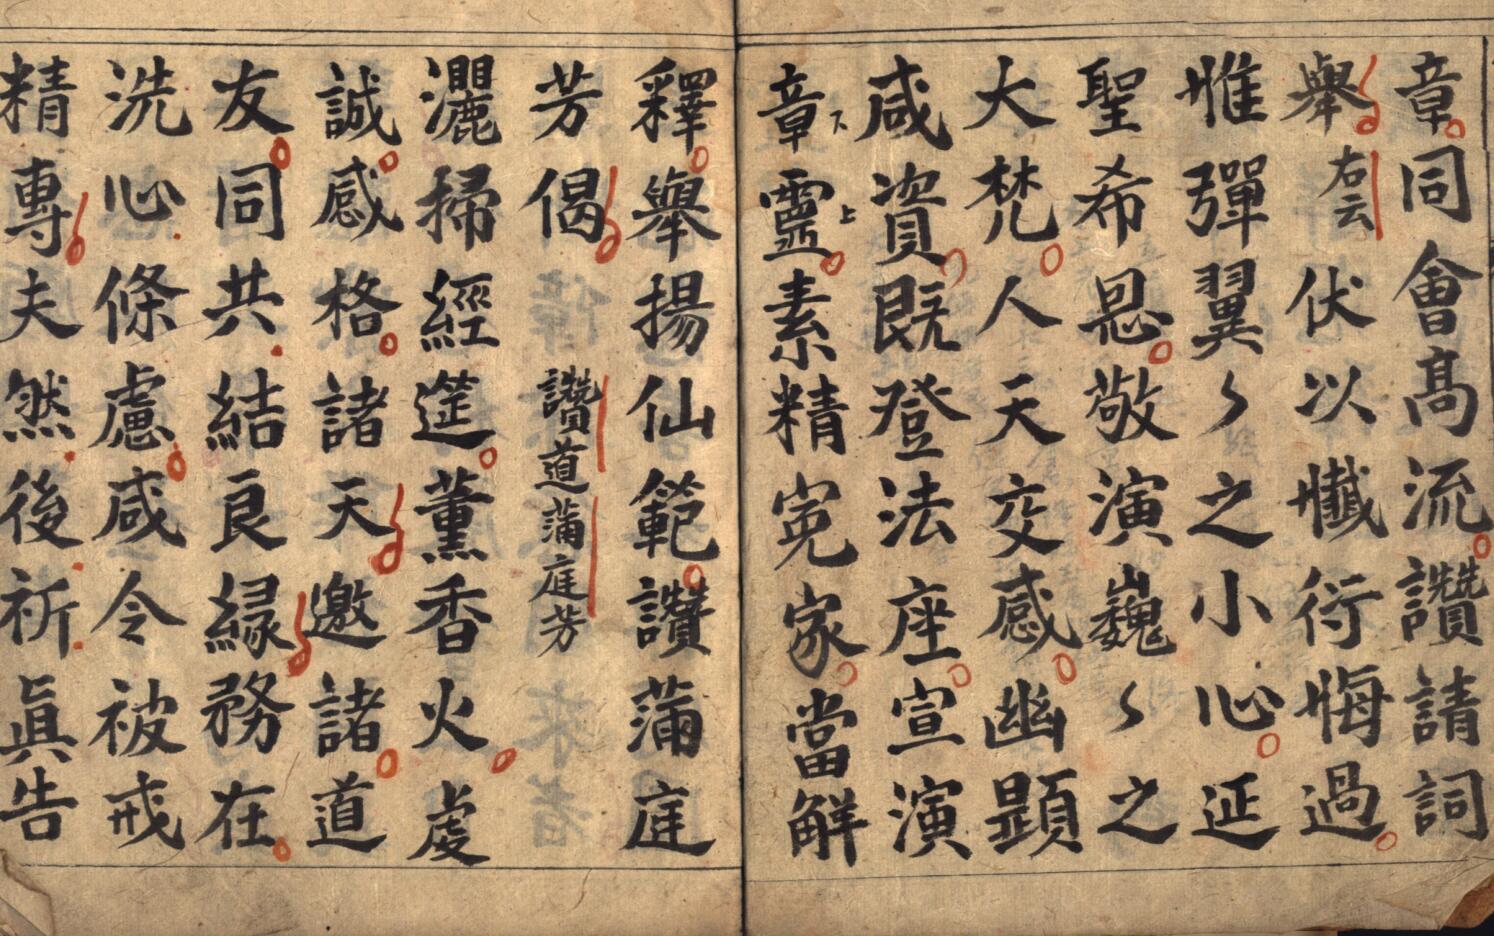 章同會高流讚請詞
舉右云伏以懺衍悔過
惟彈翼〻之小心延
聖希恩敬演巍〻之
大梵人天交感幽顕
咸資既登法座宣演
章下靈上素精寃家當解
釋舉揚仙範讚蒲庭
芳偈讚道蒲庭芳
灑掃經筵薰香火處
誠感格諸天邀諸道
友同共結良緣務在
洗心條慮咸令被戒
精專夫然後祈眞告